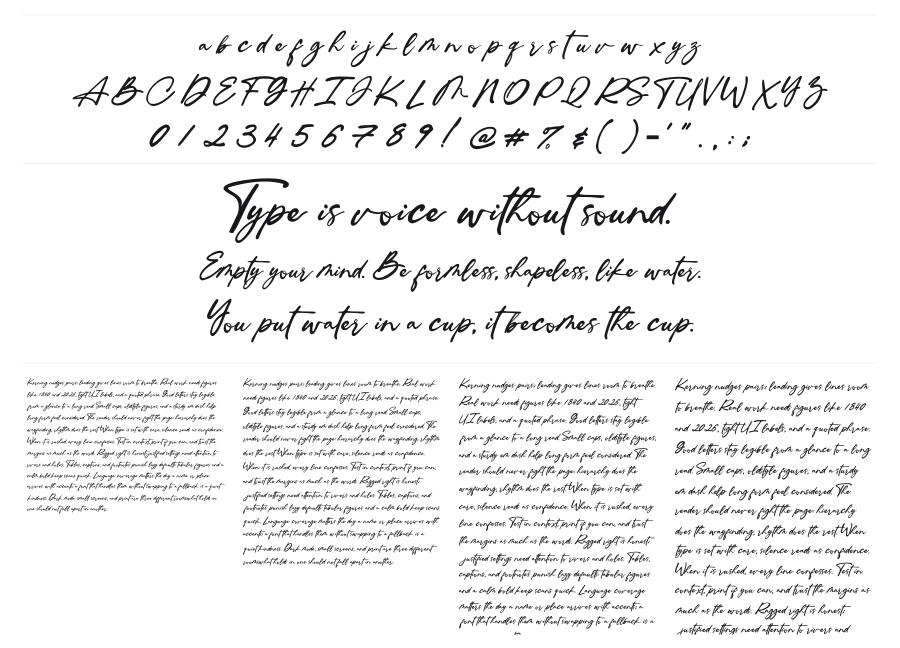 a b c d e f g h i j k l m n o p q r s t u v w x y z
A B C D E F G H I J K L M N O P Q R S T U V W X Y Z
0 1 2 3 4 5 6 7 8 9 ! @ # % & ( ) - ' " . , : ;
Type is voice without sound.
Empty your mind. Be formless, shapeless, like water.
You put water in a cup, it becomes the cup.
Kerning nudges pairs; leading gives lines room to breathe. Real work needs figures
like 1840 and 2026, tight UI labels, and a quoted phrase. Good letters stay legible
from a glance to a long read Small caps, oldstyle figures, and a sturdy em dash help
long form feel considered. The reader should never fight the page hierarchy does the
wayfinding, rhythm does the rest When type is set with care, silence reads as confidence.
When it is rushed, every line confesses. Test in context, print if you can, and trust the
margins as much as the words. Ragged right is honest; justified settings need attention to
rivers and holes. Tables, captions, and footnotes punish lazy defaults tabular figures and a
calm bold keep scans quick. Language coverage matters the day a name or place
arrives with accents a font that handles them without swapping to a fallback is a quiet
kindness. Dark mode, small screens, and print are three different rooms what holds in
one should not fall apart in another.
Kerning nudges pairs; leading gives lines room to breathe. Real work
needs figures like 1840 and 2026, tight UI labels, and a quoted phrase.
Good letters stay legible from a glance to a long read Small caps,
oldstyle figures, and a sturdy em dash help long form feel considered. The
reader should never fight the page hierarchy does the wayfinding, rhythm
does the rest When type is set with care, silence reads as confidence.
When it is rushed, every line confesses. Test in context, print if you can,
and trust the margins as much as the words. Ragged right is honest;
justified settings need attention to rivers and holes. Tables, captions, and
footnotes punish lazy defaults tabular figures and a calm bold keep scans
quick. Language coverage matters the day a name or place arrives with
accents a font that handles them without swapping to a fallback is a
quiet kindness. Dark mode, small screens, and print are three different
rooms what holds in one should not fall apart in another.
Kerning nudges pairs; leading gives lines room to breathe.
Real work needs figures like 1840 and 2026, tight
UI labels, and a quoted phrase. Good letters stay legible
from a glance to a long read Small caps, oldstyle figures,
and a sturdy em dash help long form feel considered. The
reader should never fight the page hierarchy does the
wayfinding, rhythm does the rest When type is set with
care, silence reads as confidence. When it is rushed, every
line confesses. Test in context, print if you can, and trust
the margins as much as the words. Ragged right is honest;
justified settings need attention to rivers and holes. Tables,
captions, and footnotes punish lazy defaults tabular figures
and a calm bold keep scans quick. Language coverage
matters the day a name or place arrives with accents a
font that handles them without swapping to a fallback is a
Kerning nudges pairs; leading gives lines room
to breathe. Real work needs figures like 1840
and 2026, tight UI labels, and a quoted phrase.
Good letters stay legible from a glance to a long
read Small caps, oldstyle figures, and a sturdy
em dash help long form feel considered. The
reader should never fight the page hierarchy
does the wayfinding, rhythm does the rest When
type is set with care, silence reads as confidence.
When it is rushed, every line confesses. Test in
context, print if you can, and trust the margins as
much as the words. Ragged right is honest;
justified settings need attention to rivers and